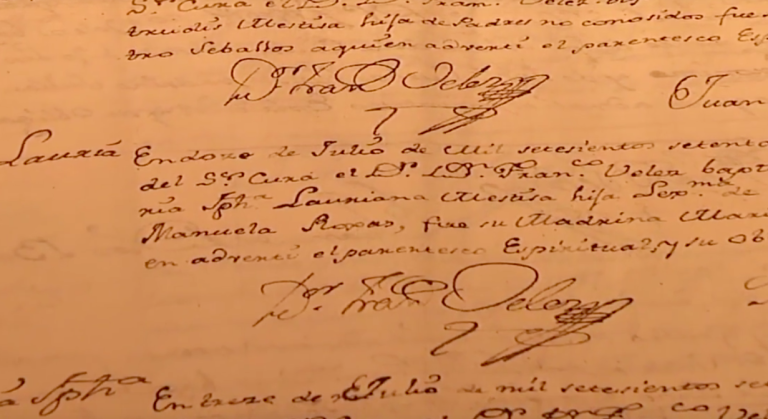 Sr. Cura el D. D. Fran. Velez
trudis Mestisa hija de Padres no conosidos fue
tro Seballos aquien adverti el parentesco Esp
Dr. Fran Velez
Juan
Lauria
En doze de Julio de Mil setesientos setenta
del Sr. Cura el D. D. Fran.co Velez bapt
ria Jpha. Lauriana Mestisa hija Lex.ma de
Manuela Roxas, fue su Madrina Mar
en adverti el parentesco Espiritual, y su ob
Dr. Fran Velez
a Jpha
En treze de Julio de mil setesientos se